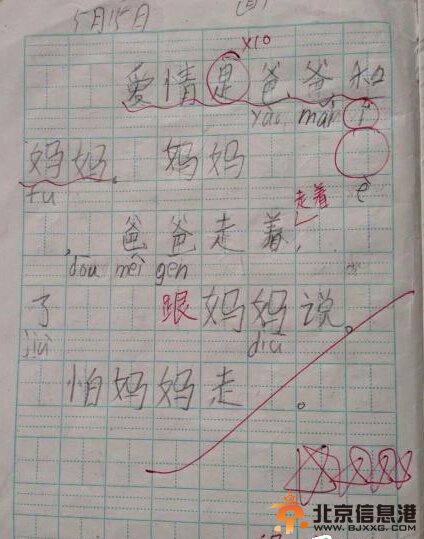 5月15日
x10
爱情是爸爸和
yao man
妈妈。妈妈
fu e
走着
爸爸走着,
dou mei gen
了跟妈妈说。
jiu diu
怕妈妈走。
北京信息港
WWW.BJXXG.COM